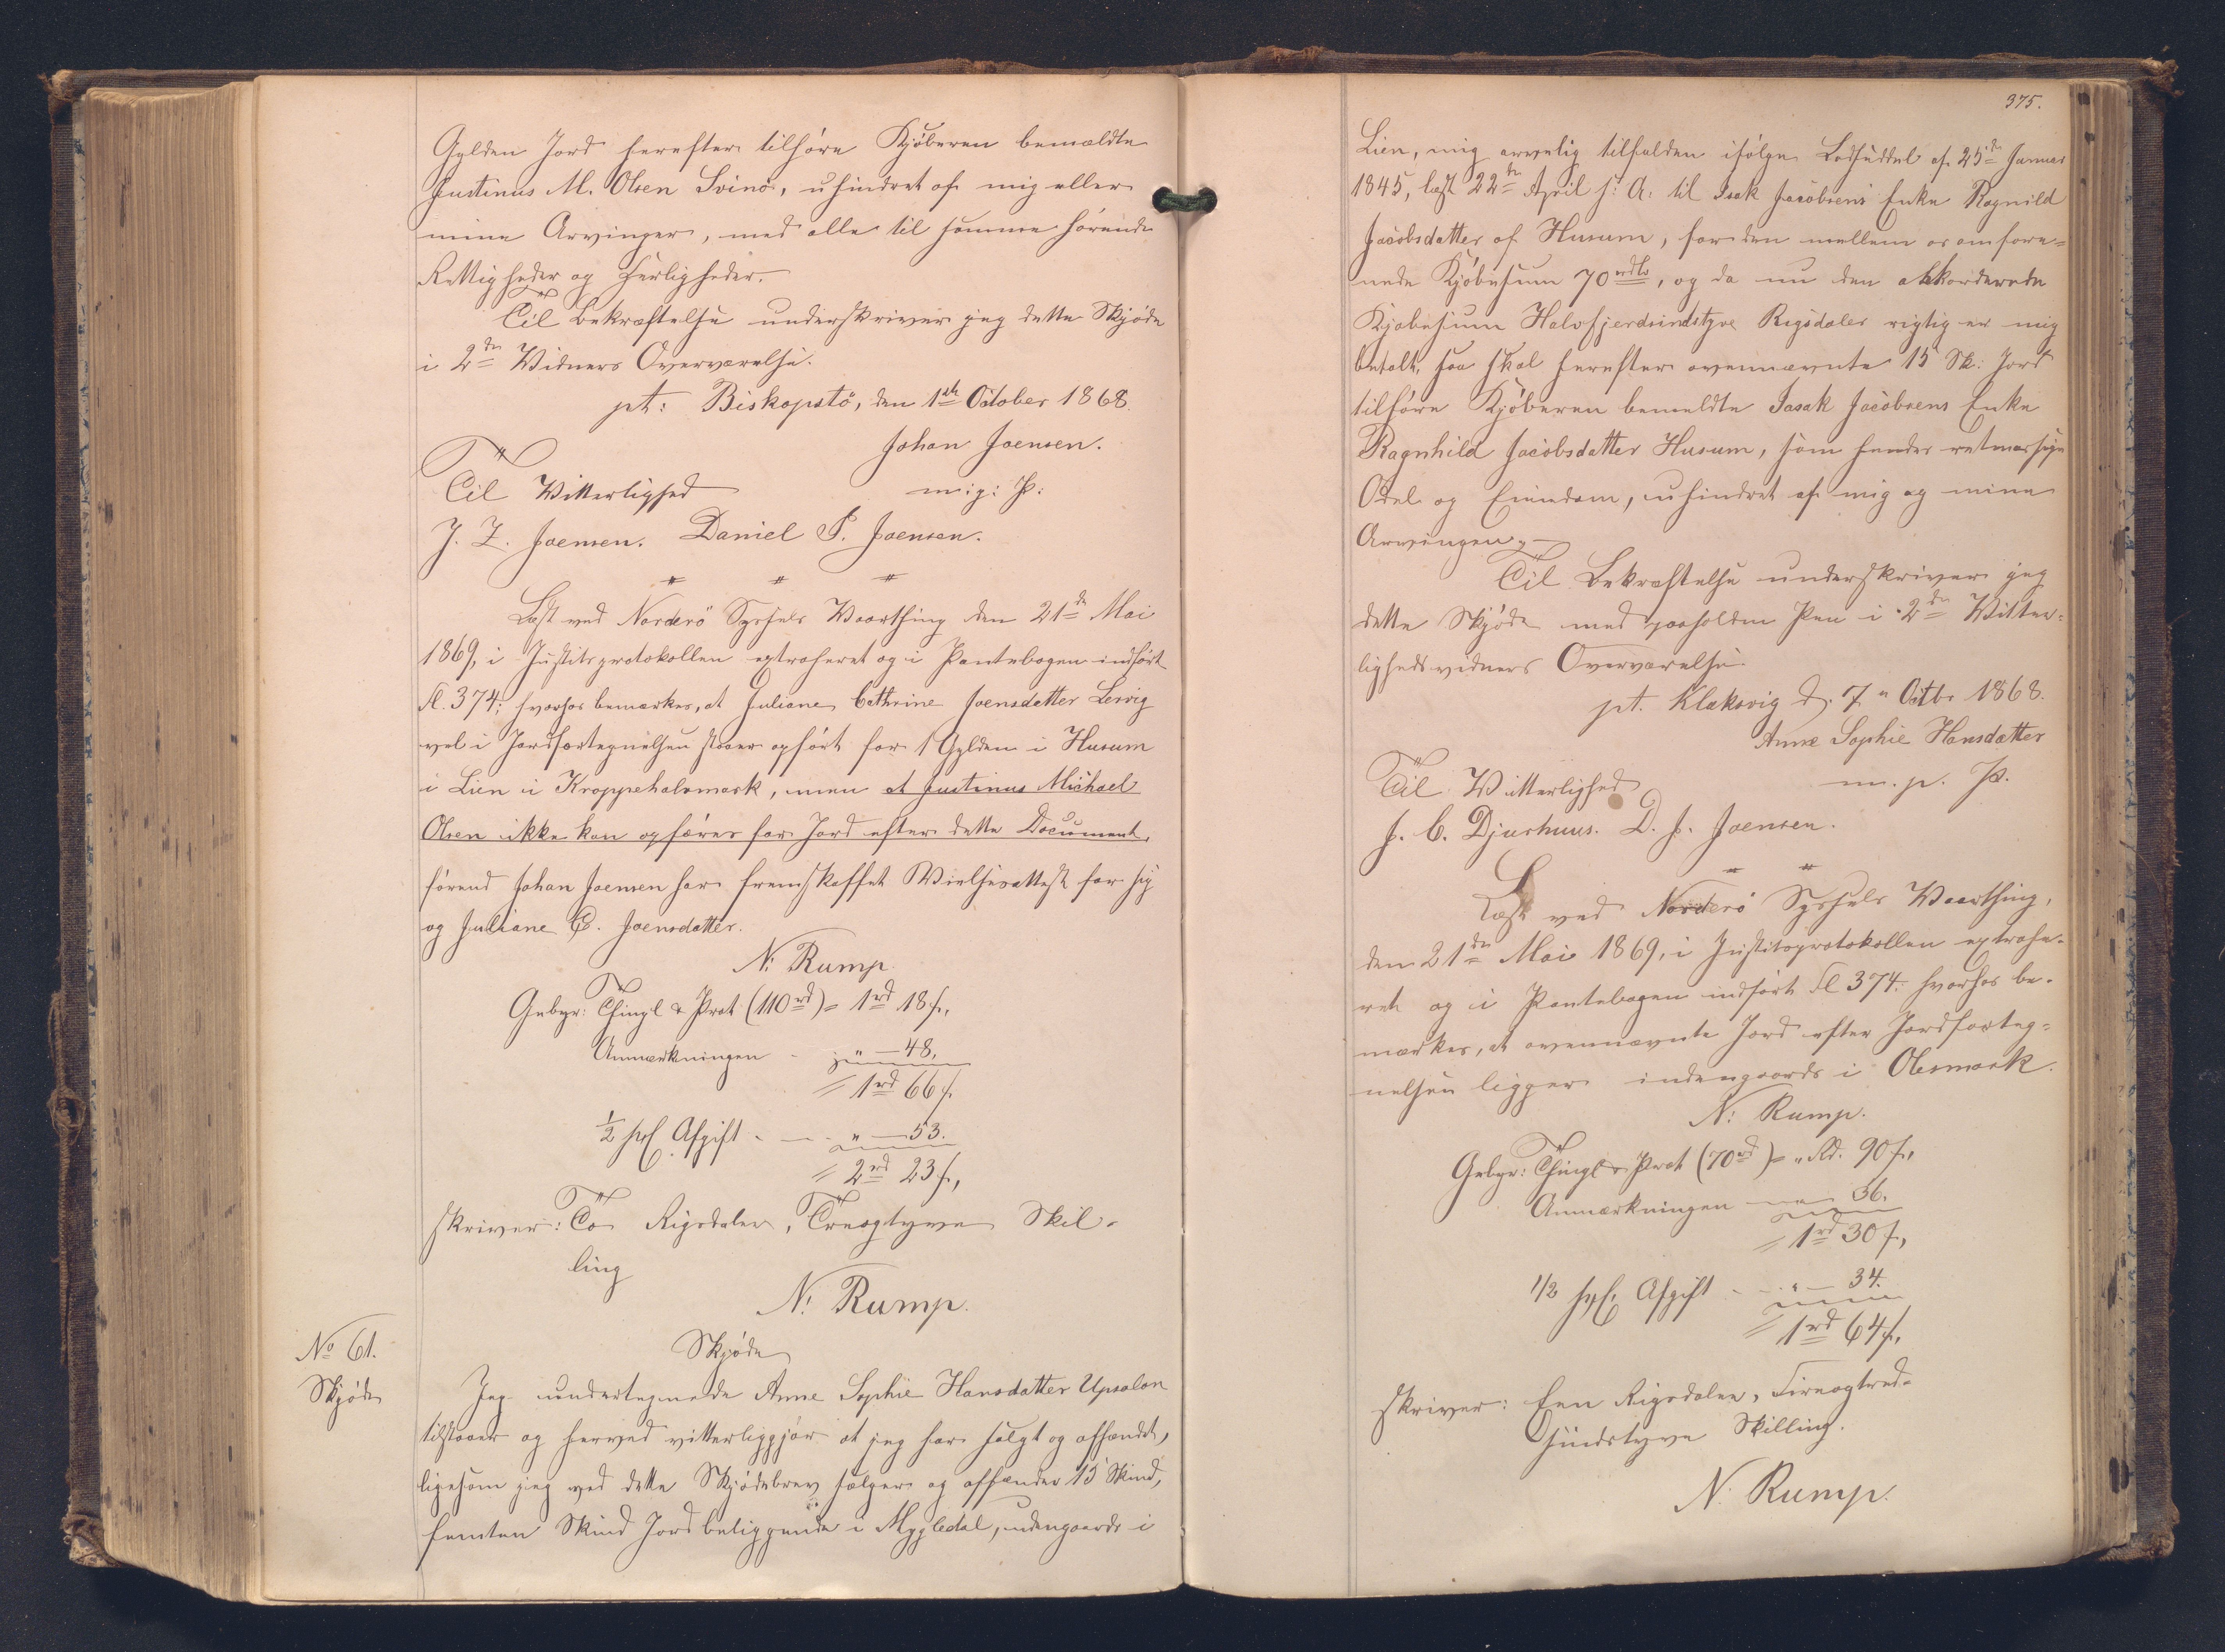 Gylden Jord herefter tilhøre Kjøberen bemældte
Justinus M. Olsen Svinø, uhindret af mig eller
mine Arvinger, med alle til samme hørende
Rettigheder og Herligheder.
Til Bekræftelse underskriver jeg dette Skjøde
i 2de Vidners Overværelse.
pt: Biskopstö, den 1ste October 1868.
Johan Joensen.
Til Vitterlighed
m: p: P:
J. Z. Joensen. Daniel P. Joensen.
Læst ved Norderö Syssels Vaarthing den 21de Mai
1869, i Justitsprotokollen extraheret og i Pantebogen indført
Fl. 374; hvorhos bemærkes, at Juliane Cathrine Joensdatter Lervig
vel i Jordfortegnelsen staaer opført for 1 Gylden i Husum
i Lien i Kroppehalvmark, men at Justinus Michael
Olsen ikke kan opføres for Jord efter dette Document,
førend Johan Joensen har fremskaffet Vielsesattest for sig
og Juliane C. Joensdatter.
N: Rump
Gebyr: Thingl & Prot (110 rd) = 1 rd 18 s,
Anmærkningen - „ — 48,
= 1 rd 66 s.
1/2 pCt. Afgift - — „ — 53.
= 2 rd 23 s,
skriver: To Rigsdaler, Treogtyve Skil-
ling
N: Rump.
No 61.
Skjøde
Skjøde
Jeg undertegnede Anne Sophie Hansdatter Upsalon
tilstaaer og herved vitterliggjør at jeg har solgt og afhændet,
ligesom jeg ved dette Skjødebrev sælger og afhænder 15 Skind,
femten Skind Jord beliggende i Mygledal, indengaards i
375.
Lien, mig arvelig tilfalden ifølge Lodseddel af 25de Januar
1845, læst 22de April s: A: til Isak Jacobsens Enke Ragnild
Jacobsdatter af Husum, for den mellem os omfore-
nede Kjøbesum 70 rdlr, og da nu den akkorderede
Kjøbesum Halvfjerdsindstyve Rigsdaler rigtig er mig
betalt, saa skal herefter ovennævnte 15 Sk: Jord
tilhøre Kjøberen bemeldte Isaak Jacobsens Enke
Ragnhild Jacobsdatter Husum, som hendes retmæssige
Odel og Eiendom, uhindret af mig og mine
Arvinger.
Til Bekræftelse underskriver jeg
dette Skjøde med paaholden Pen i 2de Vitter-
lighedsvidners Overværelse
pt. Klaksvig d. 7 Octbr 1868.
Anne Sophie Hansdatter
m. p. P.
Til Vitterlighed
J. C. Djurhuus. D. P. Joensen.
Læst ved Norderö Syssels Vaarthing,
den 21de Mai 1869, i Justitsprotokollen extrahe-
ret og i Pantebogen indført Fl 374. hvorhos be-
mærkes, at ovennævnte Jord efter Jordforteg-
nelsen ligger indengaards i Olesmark.
N: Rump.
Gebyr: Thingl & Prot (70 rd) = „ Rd. 90 s,
Anmærkningen — „ — 36.
= 1 rd 30 s,
1/2 pCt. Afgift - - „ — 34.
= 1 rd 64 s,
skriver: Een Rigsdaler, Fireogtred-
sindstyve Skilling.
N. Rump.